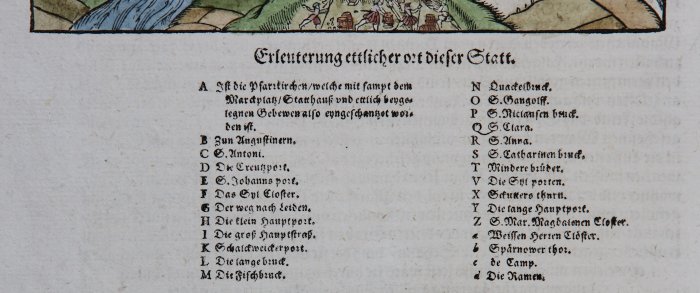 Erleuterung ettlicher ort dieser Statt.
A Ist die Pfarrkirchen/welche mit sampt dem
Marcktplatz/Statthauß vnd ettlich beyge-
legnen Gebewen also eyngeschantzet wor-
den ist.
B Zun Augustinern.
C S. Antoni.
D Die Creutzport.
E S. Johanns port.
F Das Syl Closter.
G Der weg nach Leiden.
H Die klein Hauptport.
I Die groß Hauptstraß.
K Schalckweickerport.
L Die lange bruck.
M Die Fischbruck.
N Quackelbruck.
O S. Gangolff.
P S. Niclausen bruck.
Q S. Clara.
R S. Anna.
S S. Catharinen bruck.
T Mindere brüder.
V Die Syl porten.
X Schutters thurn.
Y Die lange Hauptport.
Z S. Mar. Magdalenen Closter.
a Weissen Herren Clöster.
b Spärnower thor.
c de Camp.
d Die Ramen.